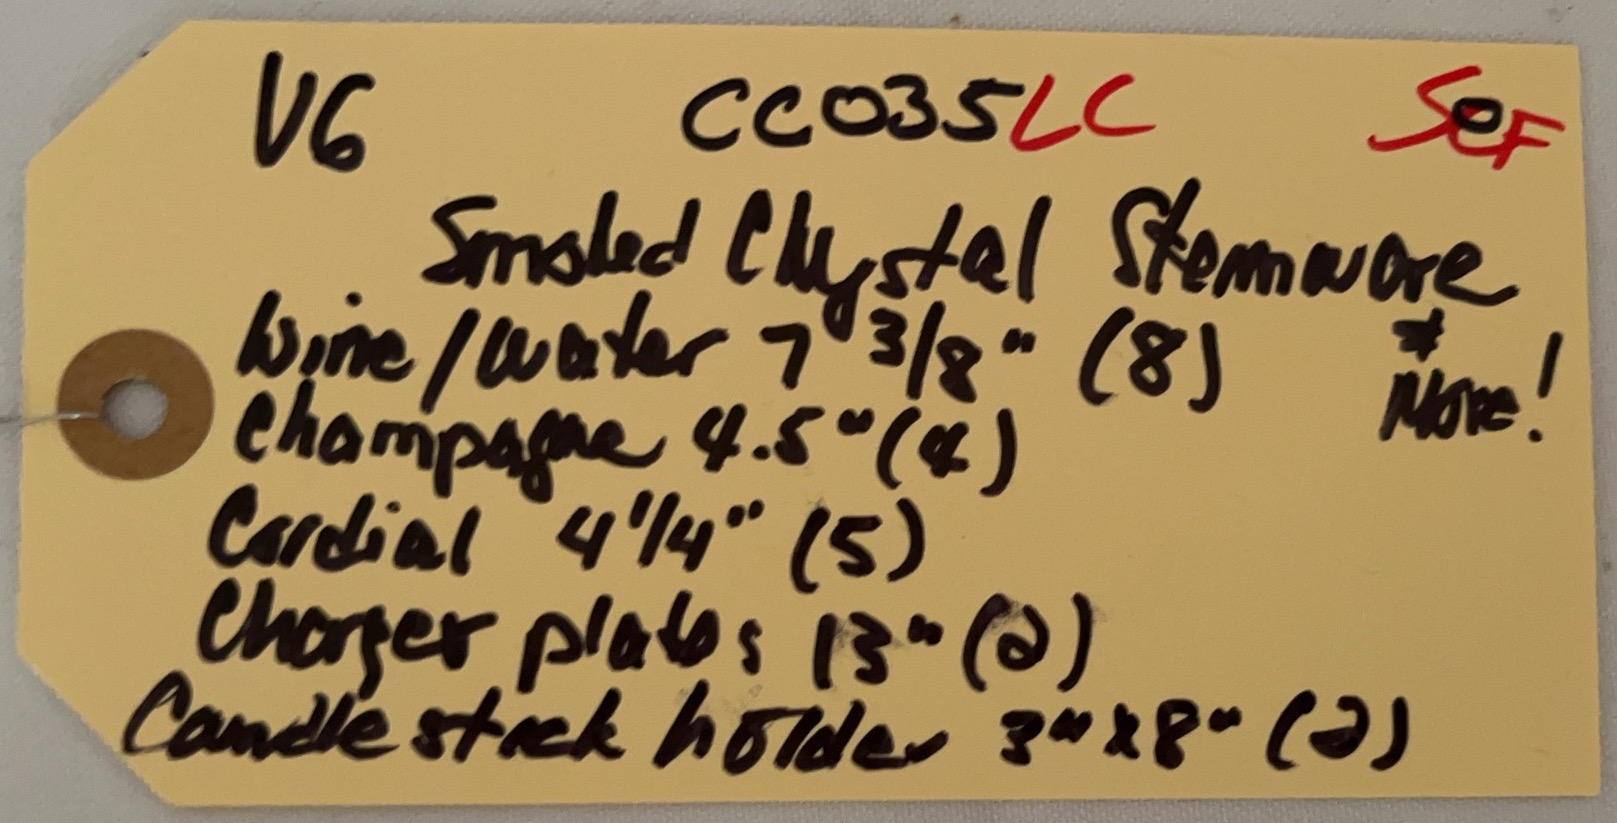 V6 CC035LC SOF
Smoked Crystal Stemware
& More!
Wine/water 7 3/8" (8)
Champagne 4.5" (4)
Cordial 4 1/4" (5)
Charger plates 13" (2)
Candle stick holder 3" x 8" (2)